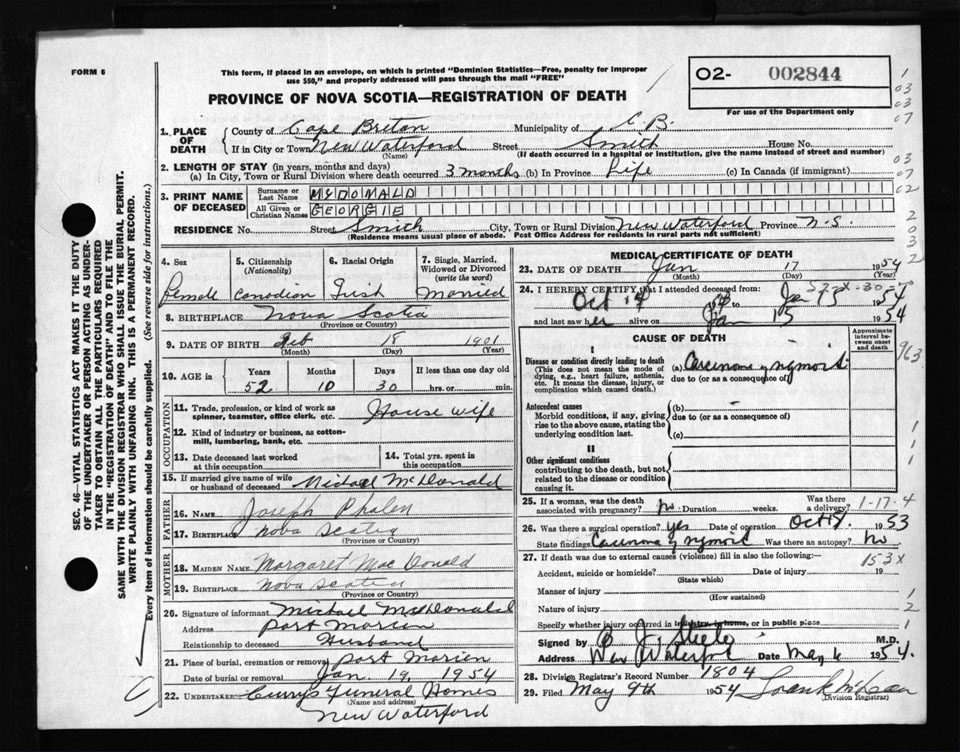 FORM 6
This form, if placed in an envelope, on which is printed "Dominion Statistics—Free, penalty for improper
use $50," and properly addressed will pass through the mail "FREE"
PROVINCE OF NOVA SCOTIA—REGISTRATION OF DEATH
02- 002844
For use of the Department only
1. PLACE OF DEATH
County of Cape Breton Municipality of C.B.
If in City or Town New Waterford Street Smith House No.
(Name) (If death occurred in a hospital or institution, give the name instead of street and number)
2. LENGTH OF STAY (in years, months and days)
(a) In City, Town or Rural Division where death occurred 3 months (b) In Province Life (c) In Canada (if immigrant)
3. PRINT NAME OF DECEASED
Surname or Last Name McDONALD
All Given or Christian Names GEORGIE
RESIDENCE No. Street Smith City, Town or Rural Division New Waterford Province N.S.
(Residence means usual place of abode. Post Office Address for residents in rural parts not sufficient)
4. Sex
Female
5. Citizenship (Nationality)
Canadian
6. Racial Origin
Irish
7. Single, Married, Widowed or Divorced (write the word)
Married
8. BIRTHPLACE Nova Scotia
(Province or Country)
9. DATE OF BIRTH Feb 18 1901
(Month) (Day) (Year)
10. AGE in
Years Months Days If less than one day old
52 10 30 hrs. or min.
OCCUPATION
11. Trade, profession, or kind of work as spinner, teamster, office clerk, etc. House wife
12. Kind of industry or business, as cotton-mill, lumbering, bank, etc.
13. Date deceased last worked at this occupation
14. Total yrs. spent in this occupation
15. If married give name of wife or husband of deceased Michael McDonald
FATHER
16. NAME Joseph Phalen
17. BIRTHPLACE Nova Scotia
(Province or Country)
MOTHER
18. MAIDEN NAME Margaret MacDonald
19. BIRTHPLACE Nova Scotia
(Province or Country)
20. Signature of informant Michael McDonald
Address Port Morien
Relationship to deceased Husband
21. Place of burial, cremation or removal Port Morien
Date of burial or removal Jan. 19, 1954
22. UNDERTAKER Curry's Funeral Homes
(Name and address)
New Waterford
MEDICAL CERTIFICATE OF DEATH
23. DATE OF DEATH Jan 17 1954
(Month) (Day) (Year)
24. I HEREBY CERTIFY that I attended deceased from:
Oct 14 to Jan 15 1954
and last saw her alive on Jan 15 1954
CAUSE OF DEATH
Approximate interval between onset and death
I
Disease or condition directly leading to death
(This does not mean the mode of dying, e.g., heart failure, asthenia, etc. It means the disease, injury, or complication which caused death.)
(a) Carcinoma
due to (or as a consequence of)
Antecedent causes
Morbid conditions, if any, giving rise to the above cause, stating the underlying condition last.
(b)
due to (or as a consequence of)
(c)
II
Other significant conditions
contributing to the death, but not related to the disease or condition causing it.
25. If a woman, was the death associated with pregnancy? No Duration weeks. Was there a delivery?
1-17-4
26. Was there surgical operation? yes Date of operation Oct 1953
State findings Carcinoma Was there an autopsy? No
27. If death was due to external causes (violence) fill in also the following:—
153X
Accident, suicide or homicide? Date of injury 19
(State which)
Manner of injury
(How sustained)
Nature of injury
Specify whether injury occurred in industry, in home, or in public place
Signed by B. J. Steele M.D.
Address New Waterford Date May 6 1954.
28. Division Registrar's Record Number 1804
29. Filed May 9th 1954 Frank McLean
(Division Registrar)
SEC. 46—VITAL STATISTICS ACT MAKES IT THE DUTY
OF THE UNDERTAKER OR PERSON ACTING AS UNDER-
TAKER TO OBTAIN ALL THE PARTICULARS REQUIRED
IN THE "REGISTRATION OF DEATH" AND TO FILE THE
SAME WITH THE DIVISION REGISTRAR WHO SHALL ISSUE THE BURIAL PERMIT.
WRITE PLAINLY WITH UNFADING INK. THIS IS A PERMANENT RECORD.
Every item of information should be carefully supplied. (See reverse side for instructions.)